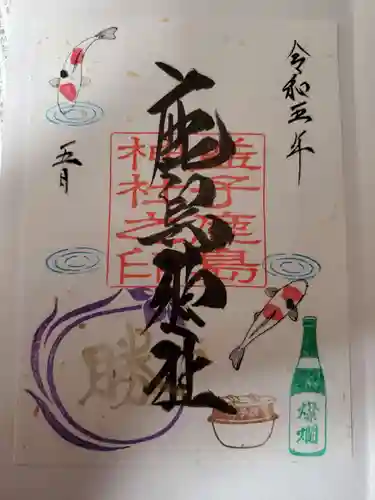 令和五年
鹿島神社
五月
益子鹿島
神社之印
勝
燦爛